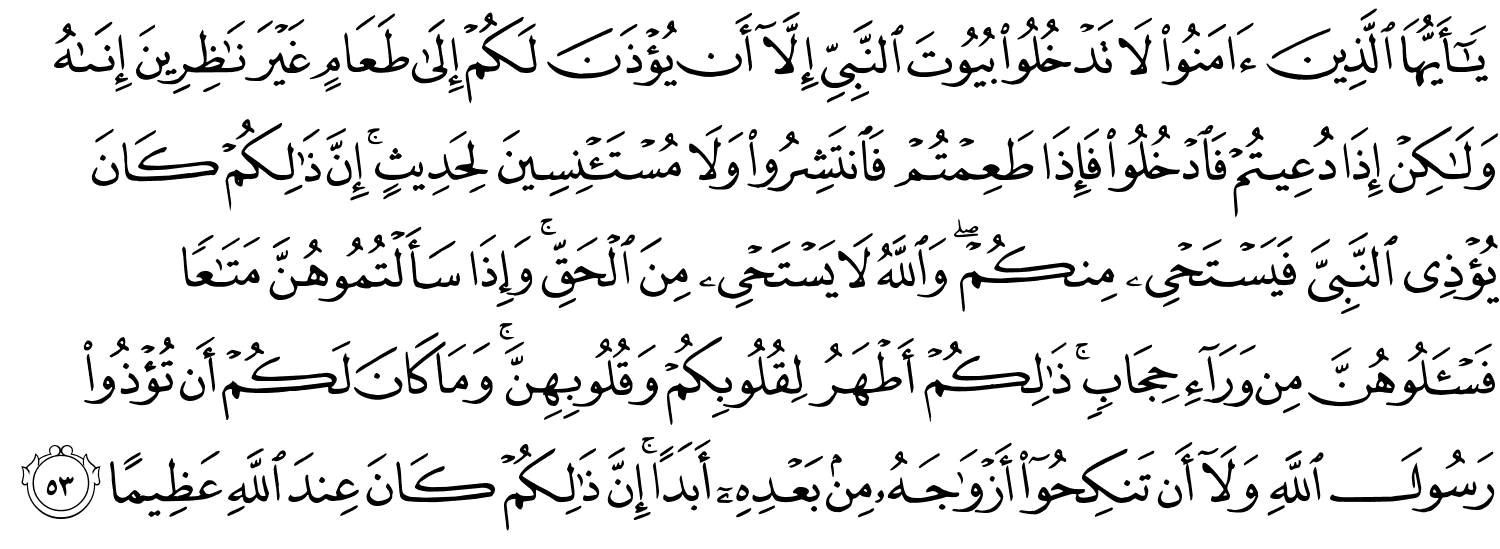 يَـٰٓأَيُّهَا ٱلَّذِينَ ءَامَنُوا۟ لَا تَدْخُلُوا۟ بُيُوتَ ٱلنَّبِىِّ إِلَّآ أَن يُؤْذَنَ لَكُمْ إِلَىٰ طَعَامٍ غَيْرَ نَـٰظِرِينَ إِنَىٰهُ
وَلَـٰكِنْ إِذَا دُعِيتُمْ فَٱدْخُلُوا۟ فَإِذَا طَعِمْتُمْ فَٱنتَشِرُوا۟ وَلَا مُسْتَـْٔنِسِينَ لِحَدِيثٍ ۚ إِنَّ ذَٰلِكُمْ كَانَ
يُؤْذِى ٱلنَّبِىَّ فَيَسْتَحْىِۦ مِنكُمْ ۖ وَٱللَّهُ لَا يَسْتَحْىِۦ مِنَ ٱلْحَقِّ ۚ وَإِذَا سَأَلْتُمُوهُنَّ مَتَـٰعًا
فَسْـَٔلُوهُنَّ مِن وَرَآءِ حِجَابٍ ۚ ذَٰلِكُمْ أَطْهَرُ لِقُلُوبِكُمْ وَقُلُوبِهِنَّ ۚ وَمَا كَانَ لَكُمْ أَن تُؤْذُوا۟
رَسُولَ ٱللَّهِ وَلَآ أَن تَنكِحُوٓا۟ أَزْوَٰجَهُۥ مِنۢ بَعْدِهِۦٓ أَبَدًا ۚ إِنَّ ذَٰلِكُمْ كَانَ عِندَ ٱللَّهِ عَظِيمًا ٥٣